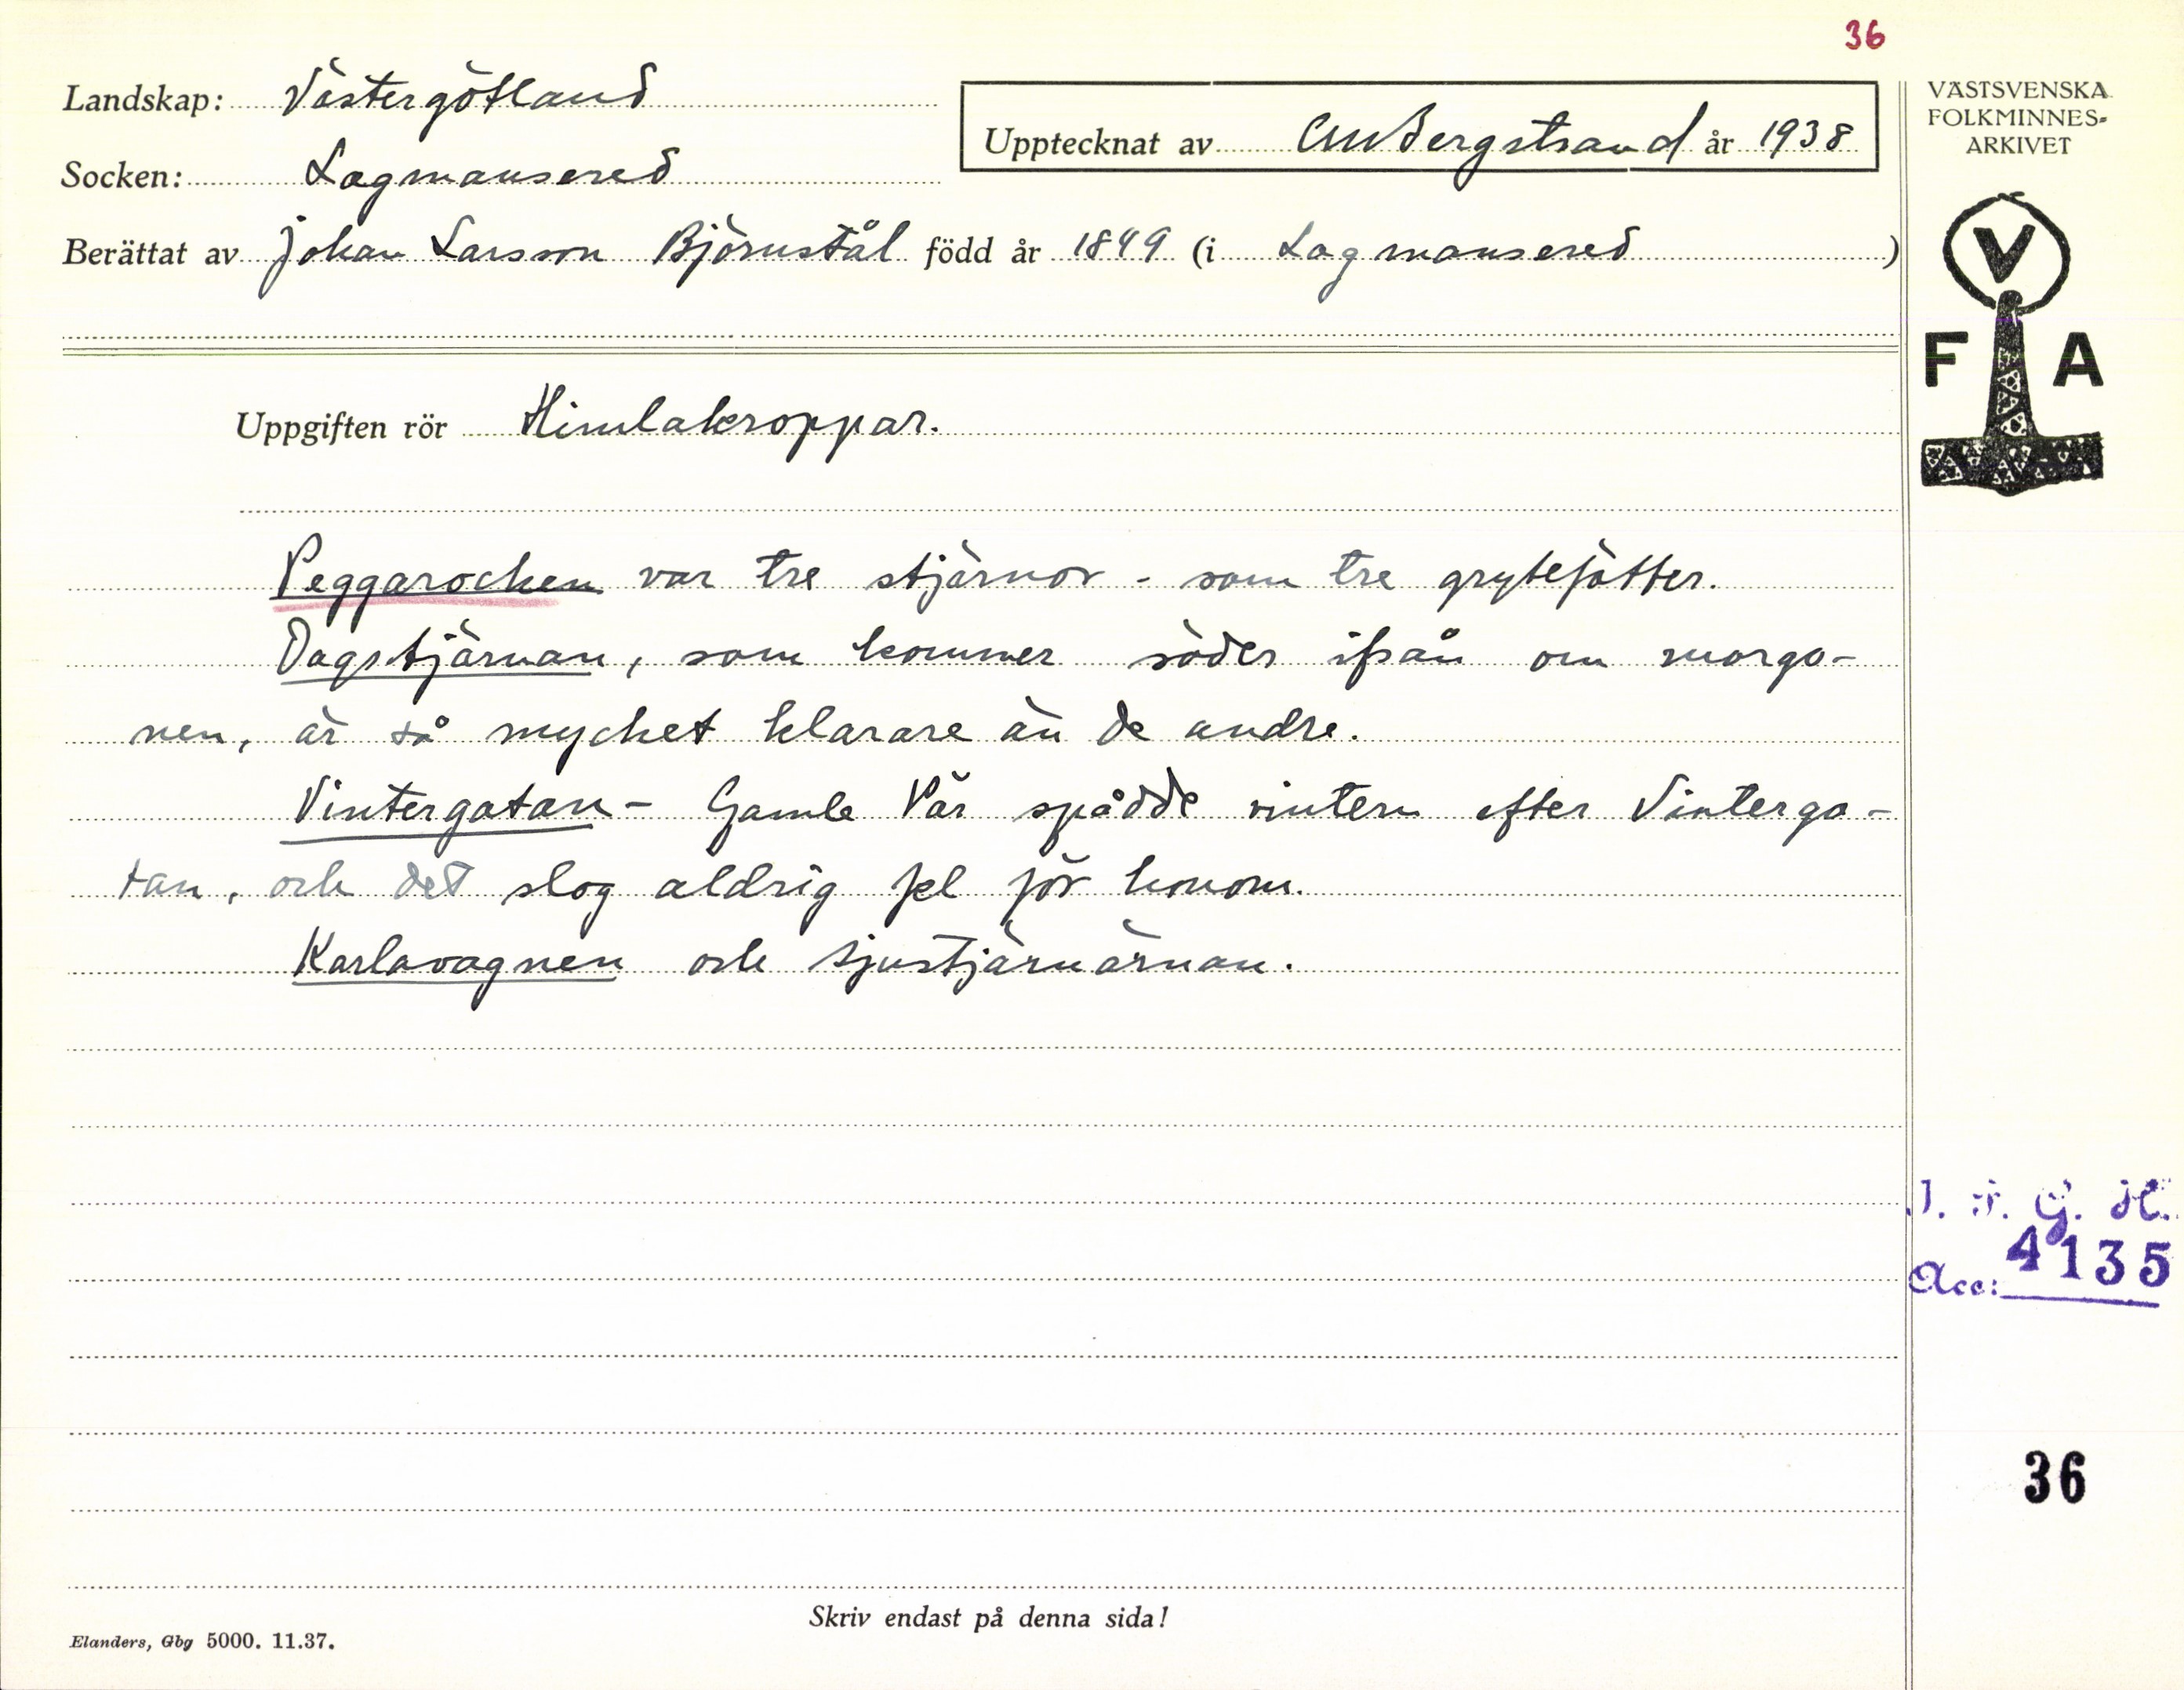 36
Landskap: Västergötland
Upptecknat av CM Bergstrand år 1938
Socken: Lagmansered
Berättat av Johan Larsson Björnstål född år 1849 (i Lagmansered )
VÄSTSVENSKA
FOLKMINNES-
ARKIVET
V
F A
Uppgiften rör Himlakroppar.
Peggarocken var tre stjärnor - som tre grytefötter.
Dagstjärnan, som kommer söder ifrån om morgo-
nen, är så mycket klarare än de andre.
Vintergatan - Gamle Pär spådde vintern efter Vinterga-
tan, och det slog aldrig fel för honom.
Karlavagnen och sjustjärnärnan.
I. F. G. H.
Acc: 4135
36
Skriv endast på denna sida!
Elanders, Gbg 5000. 11.37.